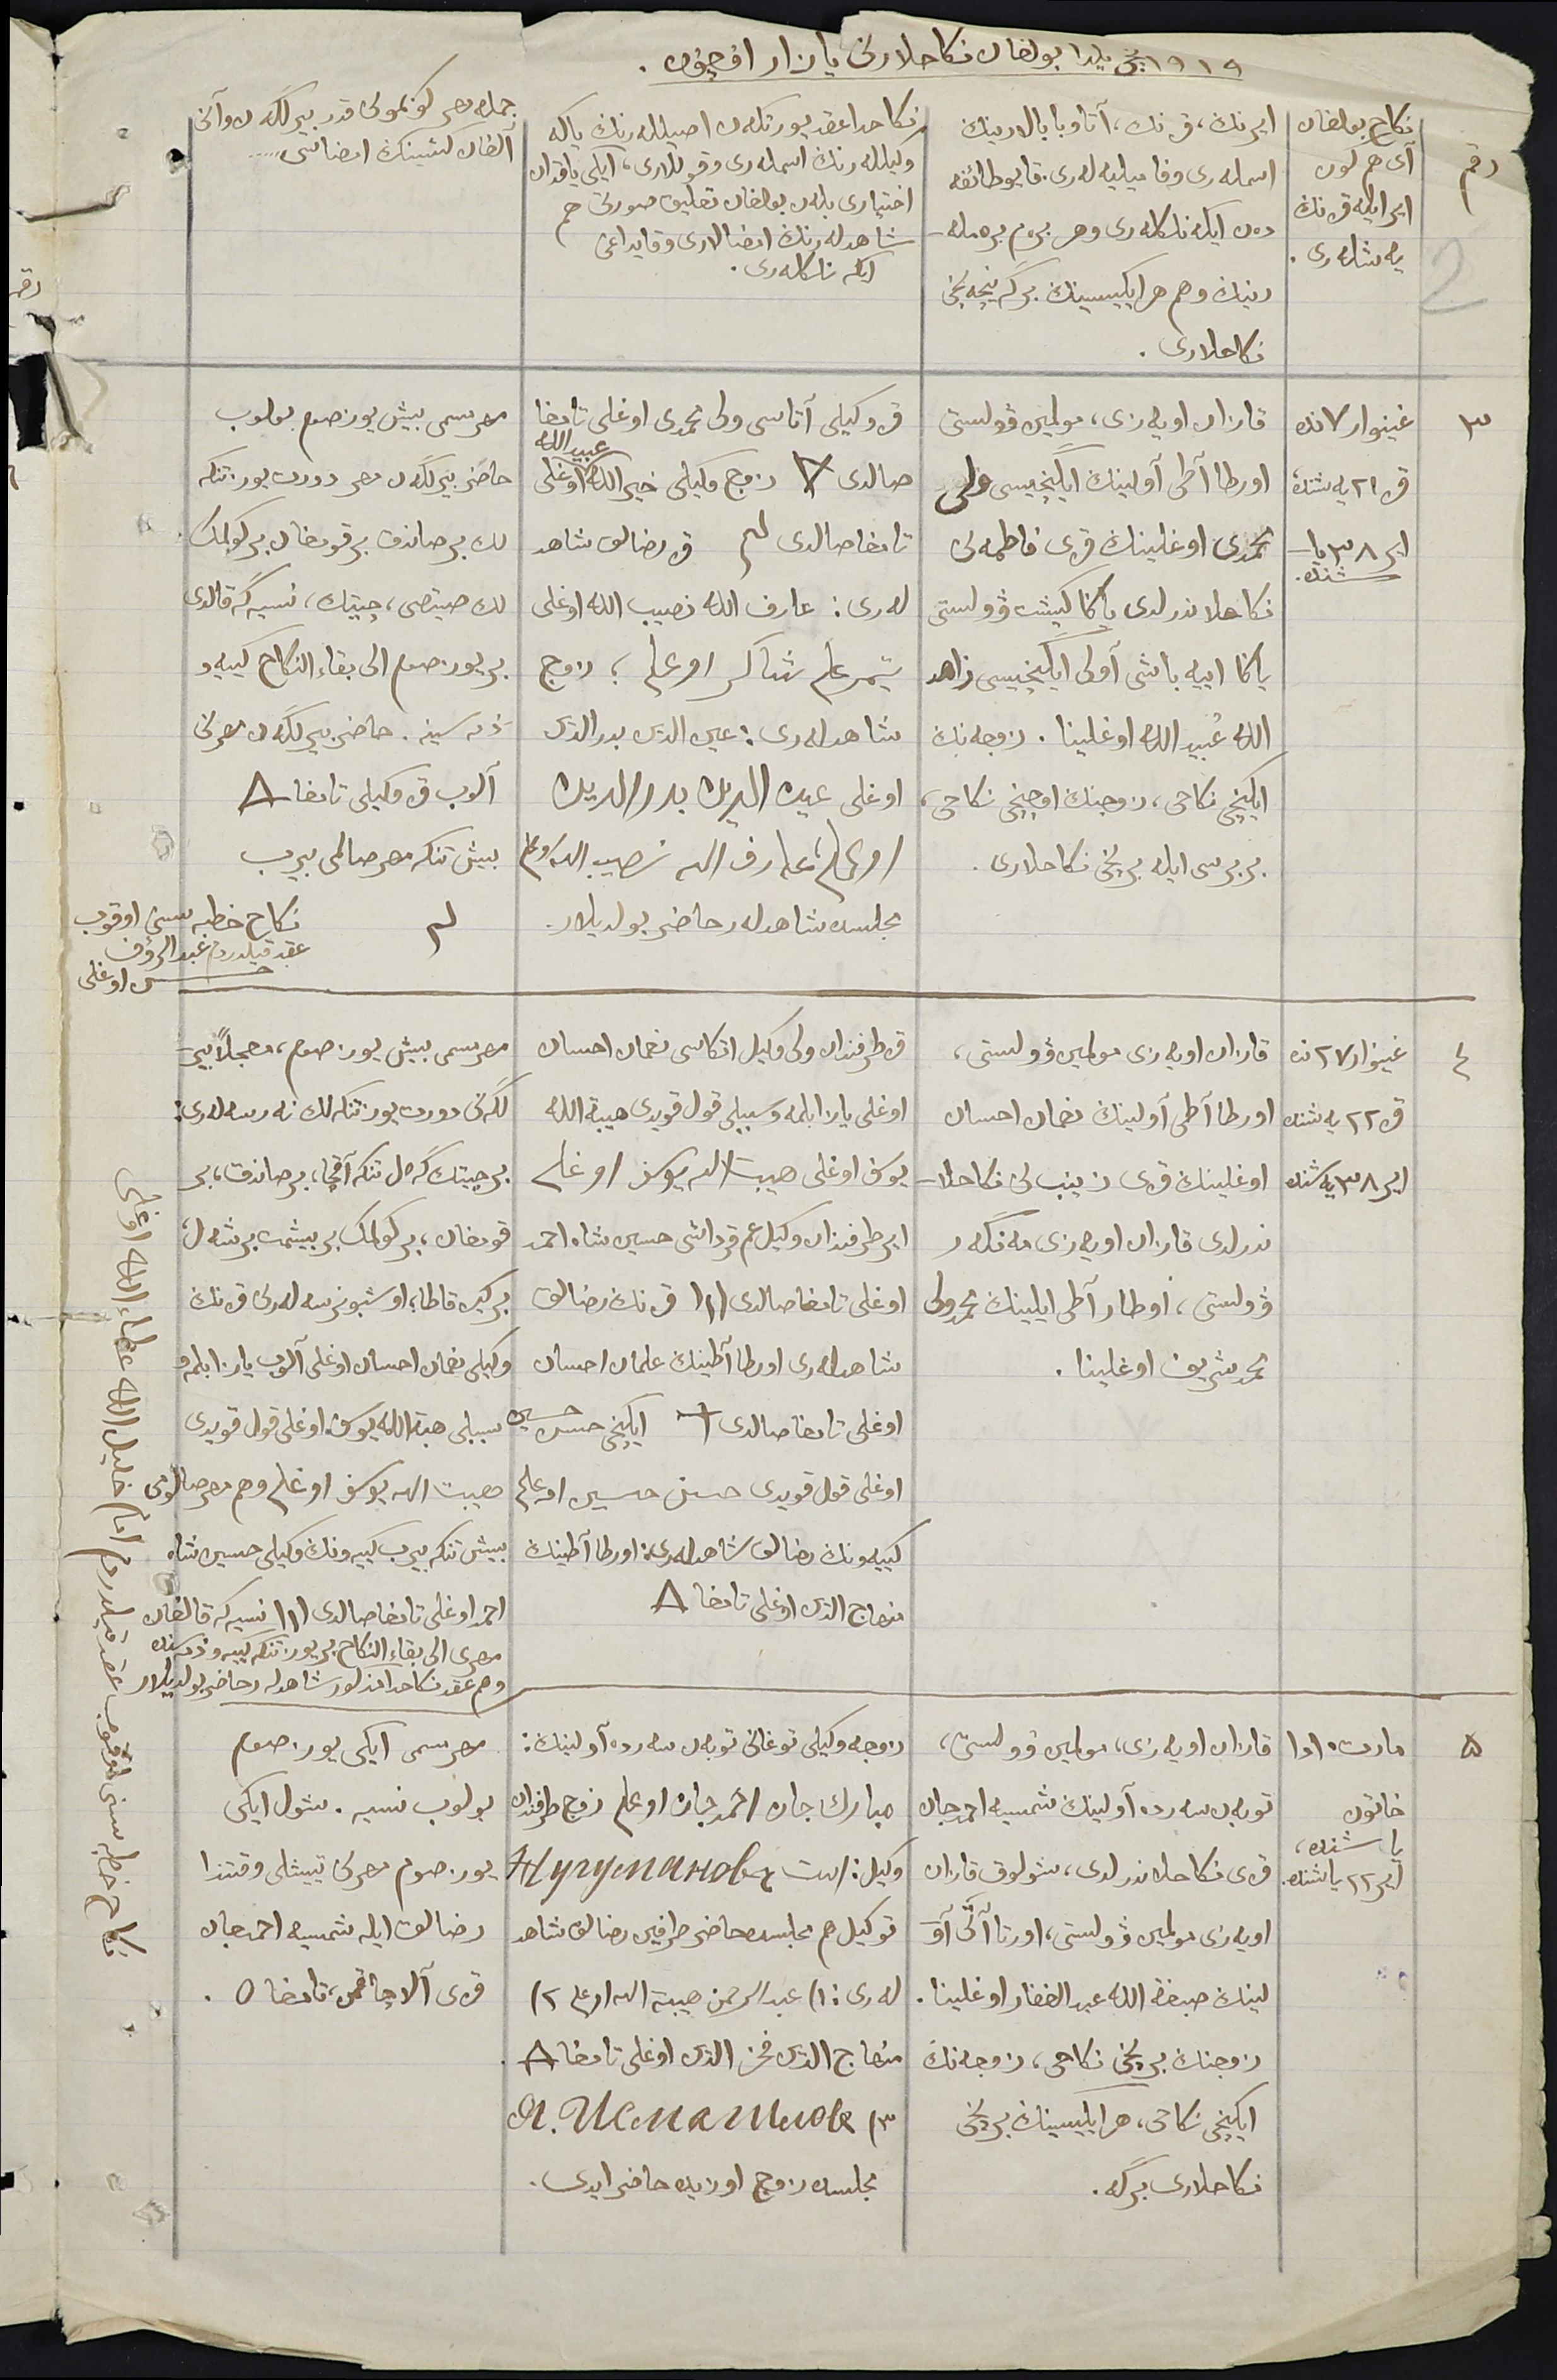 ١٩١٩ نچی یلدا بولغان نکاحلارنی یازار اوچون.
رقم
2
نکاح بولغان
آی هم کون
ایر ایله قزنڭ
یه‌شله‌ری.
ایرنڭ، قزنڭ، آتا و بابالارینڭ
اسمله‌ری و فامیلیه له‌ری. قایو طائفه
دن ایکه‌نلکله‌ری و هر بره‌م بره‌مله‌
رینڭ و هم هر ایکیسینڭ برگه نیچه نچی
نکاحلاری.
نکاحدا عقد یورتکه‌ن اصیلله‌رنڭ یاکه
وکیلله‌رنڭ اسمله‌ری و قوللاری، ایکی یاقدان
اختیاری بله‌ن بولغان تعلیق صورتی هم
شاهدله‌رنڭ امضالاری و قایداغی
ایکه‌نلکله‌ری.
جمله مهر کوپمو لی قدر بیرلگه‌ن و آنی
آلغان کشینڭ امضاسی.....
٣
غینوار ٧ نده
قز ٢١ یه‌شنده
ایر ٣٨ یا
شنده.
قازان اویه‌زی، مولمین ڤولستی
اورطا آطی آولینڭ ایگنچیسی ولی
محمدی اوغلینڭ قزی فاطمه‌نی
نکاحلاندرلدی یاڭا کیشت ڤولستی
یاڭا اییه باشی آولی ایگنچیسی زاهد
الله عُبید الله اوغلینا. زوجه‌نڭ
ایکنچی نکاحی، زوجنڭ اوچنچی نکاحی،
بربرسی ایله برنچی نکاحلاری.
قز وکیلی آتاسی ولی محمدی اوغلی تامغا
صالدی X زوج وکیلی خیرالله عبیدالله اوغلی
تامغا صالدی قز رضالق شاهد
له‌ری: عارف الله نصیب الله اوغلی
شاکر اوغلی؛ زوج
شاهدله‌ری: عین الدین بدرالدین
اوغلی عین الدین بدرالدین
اوغلی؛ عارف الله نصیب الله اوغلی
مجلسده شاهدله‌ر حاضر بولدیلار.
مهر سمی بیش یوز صوم بولوب
حاضر بیرلگه‌ن مهر دورت یوز تنکه
لك بر صاندق بر قومغان بر کولمك
لك صیتصی، چیتك، نسیه‌گه قالدی
بر یوز صوم الی بقاء النکاح کییه‌و
ذمه‌سینه. حاضر بیرلگه‌ن مهرنی
آلوب قز وکیلی تامغا Λ
بیش تنکه مهر صالمی بیرب
نکاح خطبه سینی اوقوب
عقد قیلدردم عبدالرؤف
حسن اوغلی
٤
غینوار ٢٧ نده
قز ٢٢ یه‌شنده
ایر ٣٨ یه‌شنده
قازان اویه‌زی مولمین ڤولستی،
اورطا آطی آولینڭ نعمان احسان
اوغلینڭ قزی زینب نی نکاحلا
ندرلدی قازان اویه‌زی مه‌نگه‌ر
ڤولستی، اوطار آطی ایلینڭ محمدولی
محمد شریف اوغلینا.
قز طرفندان ولی وکیل اتکاسی نعمان احسان
اوغلی یازا بلمه‌و سببلی قول قویدی هیبة الله
یوسف اوغلی هیبت الله یوسف اوغلی
ایر طرفندان وکیل عم قرداشی حسین شاه احمد
اوغلی تامغا صالدی ١١١ قزنڭ رضالق
شاهدله‌ری اورطا آطینڭ علمان احسان
اوغلی تامغا صالدی ایکنچی حسن حسین
اوغلی قول قویدی حسن حسین اوغلی
کییه‌ونڭ رضالق شاهدله‌ری: اورطا آطینڭ
منهاج الدین اوغلی تامغا Λ
مهر سمی بیش یوز صوم، معجلاً بیر
لگه‌نی دورت یوز تنکه‌لك نه‌رسه‌له‌ری:
بر چیتك گه ل تنکه آقچا، بر صاندق، بر
قومغان، بر کولمك بر بیشمت بر شه‌ل،
بر کیر قاطا، اوشبو نرسه له‌رنی قزنڭ
وکیلی نعمان احسان اوغلی آلوب یازا بلمه‌و
سببلی هبة الله یوسف اوغلی قول قویدی
هیبت الله یوسف اوغلی وهم مهر صالوی
بیش تنکه بیرب کییه‌ونڭ وکیلی حسین شاه
احمد اوغلی تامغا صالدی ١١١ نسیه‌گه قالغان
مهری الی بقاء النکاح بر یوز تنکه کییه‌و ذمه‌سنده
وهم عقد نکاحدا مذکور شاهدله‌ر حاضر بولدیلار
نکاح خطبه سنی اوقوب عقد قیلدردم امام خلیل الله عطاء الله اوغلی
٥
مارت ١٥١
خاتون
یاشنده،
ایر ٢٢ یاشنده.
قازان اویه‌زی، مولمین ڤولستی،
توبه‌ن سه‌رده آولینڭ شمسیه احمدجان
قزی نکاحلاندرلدی، شولوق قازان
اویه‌زی مولمین ڤولستی، اورتا آتی آو
لینڭ صبغة الله عبدالغفار اوغلینا.
زوجنڭ برنچی نکاحی، زوجه‌نڭ
ایکنچی نکاحی، هر ایکیسینڭ برنچی
نکاحلاری برگه.
زوجه وکیلی توغانی توبه‌ن سه‌رده آولینڭ:
مبارك جان احمدجان اوغلی زوج طرفندان
وکیل: Нугумановъ
توکیل هم مجلسده حاضر طرفین رضالق شاهد
له‌ری: ١) عبدالرحمن هیبة الله اوغلی ٢)
منهاج الدین فخرالدین اوغلی تامغا Λ
٣) Я. Исмагиловъ
مجلسده زوج اوزیده حاضر ایدی.
مهر سمی ایکی یوز صوم
بولوب نسیه. شول ایکی
یوز صوم مهرنی تییشلی وقتندا
رضالق ایله شمسیه احمدجان
قزی آلاچاقمن، تامغا ٥.